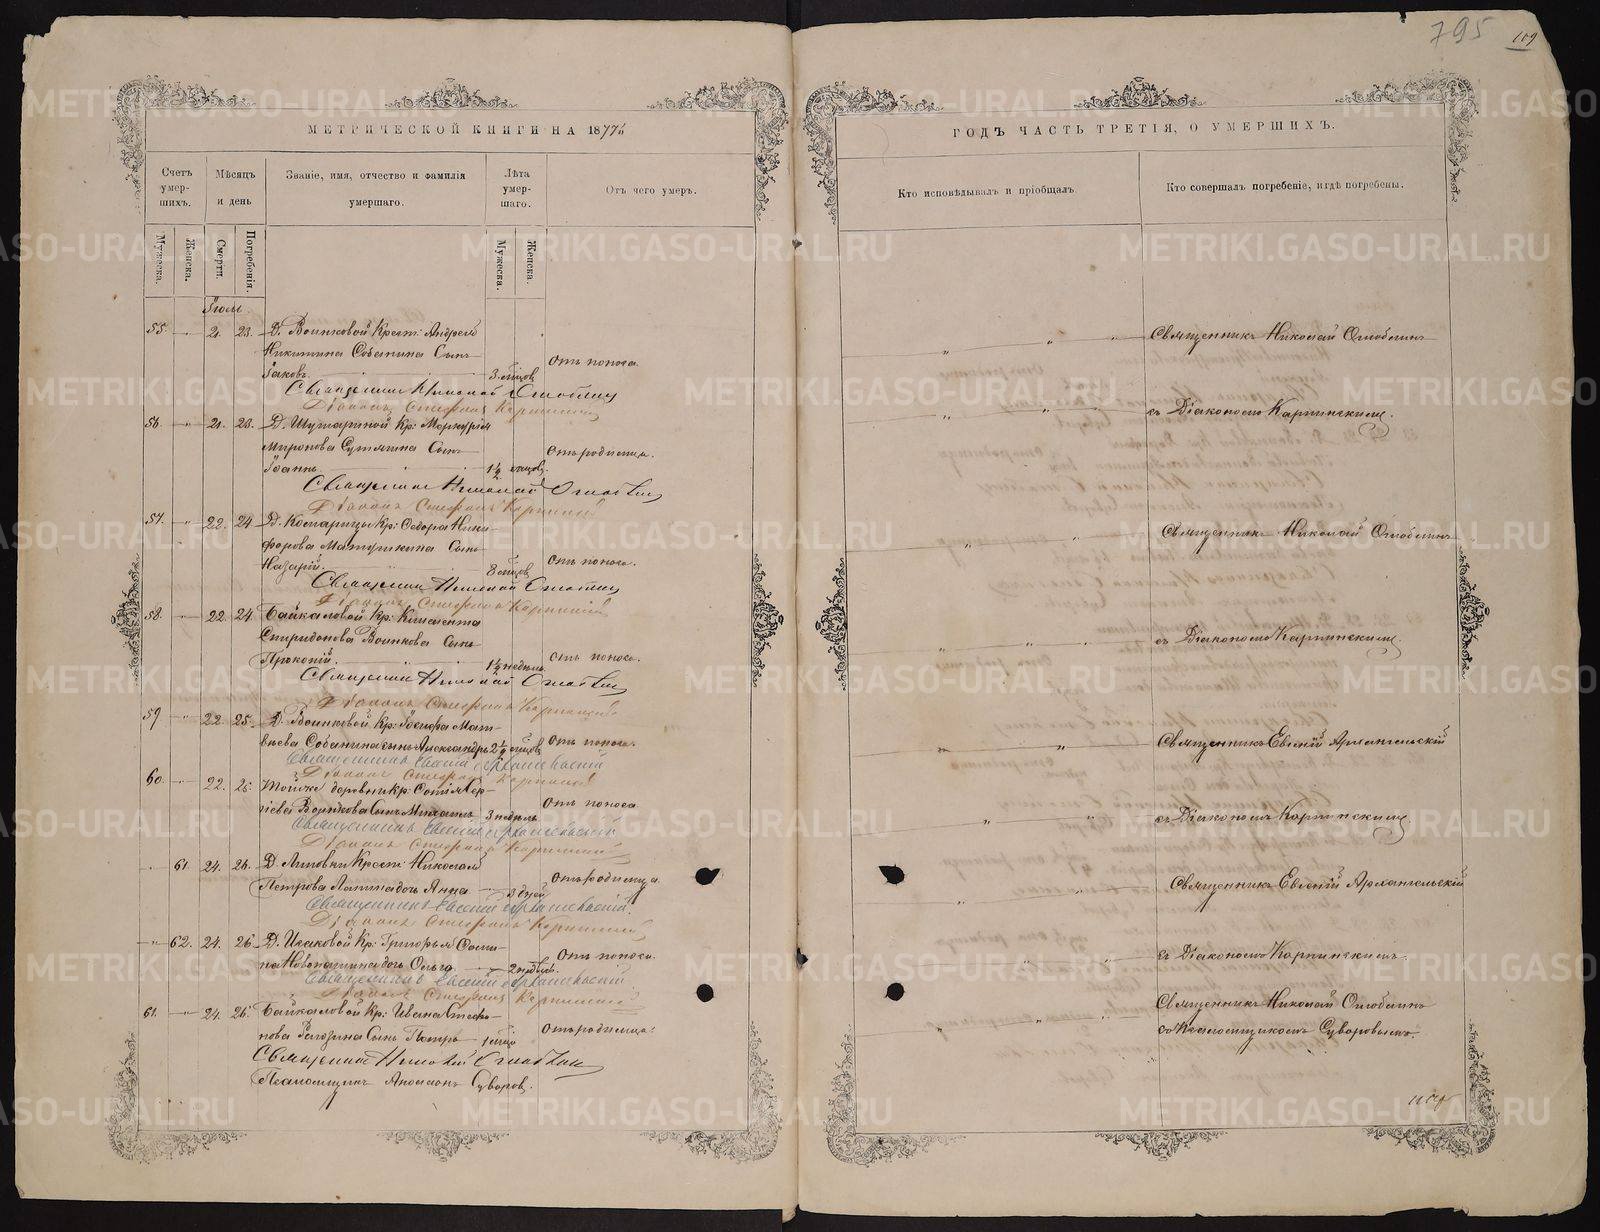 795
109
МЕТРИЧЕСКОЙ КНИГИ НА 1877й
Счетъ умер-шихъ.
Мѣсяцъ и день
Званіе, имя, отчество и фамилія умершаго.
Лѣта умер-шаго.
Отъ чего умеръ.
Мужеска.
Женска.
Смерти.
Погребенія.
Мужеска.
Женска.
Іюль
55. 21. 23. Д. Воинковой Крест: Андрея
Никитина Собанина Сынъ
Іаковъ. 3 мѣсцов Отъ поноса.
Священникъ Николай Оглоблинъ
Діаконъ Стефанъ Карпинскій
56. 21. 23. Д. Шушариной Кр: Меркурія
Миронова Сутягина Сынъ
Іоаннъ 1½ мѣсцов. Отъ родимца.
Священникъ Николай Оглоблинъ
Діаконъ Стефанъ Карпинскій
57. 22. 24 Д. Комарицы Кр: Ѳедора Ники-
форова Матушкина Сынъ
Назарій. 8 мѣсцов Отъ поноса.
Священникъ Николай Оглоблинъ
Діаконъ Стефанъ Карпинскій
58. 22. 24. Байкаловой Кр: Климента
Спиридонова Воинкова Сынъ
Прокопій. 1½ недѣль Отъ поноса.
Священникъ Николай Оглоблинъ
Діаконъ Стефанъ Карпинскій
59 22. 25. Д. Воинковой Кр: Іосифа Мат-
вѣева Собанина сынъ Александръ 2½ мѣсцов Отъ поноса.
Священникъ Евгеній Архангельскій
Діаконъ Стефанъ Карпинскій
60. 22. 25. Тойже деревни кр:
Воинкова Сынъ Михаилъ 3 недѣль Отъ поноса
Священникъ Евгеній Архангельскій
Діаконъ Стефанъ Карпинскій
61 24. 26. Д. Липовки Крест: Николая
Петрова Лапина дочь Анна 3 дней Отъ родимца.
Священникъ Евгеній Архангельскій.
Діаконъ Стефанъ Карпинскій
62. 24. 26 Д. Исаковой Кр: Григорья
дочь Ольга 2 недѣль. Отъ поноса.
Священникъ Евгеній Архангельскій
Діаконъ Стефанъ Карпинскій
61. 24. 26. Байкаловой Кр: Ивана Стефа-
нова Сынъ Петръ 1 мѣсц Отъ родимца.
Священникъ Николай Оглоблинъ
Псаломщикъ Суворовъ.
ГОДЪ ЧАСТЬ ТРЕТІЯ, О УМЕРШИХЪ.
Кто исповѣдывалъ и пріобщалъ.
Кто совершалъ погребеніе, и гдѣ погребены.
Священникъ Николай Оглоблинъ
съ Діакономъ Карпинскимъ.
Священникъ Николай Оглоблинъ
съ Діакономъ Карпинскимъ.
Священникъ Евгеній Архангельскій
съ Діакономъ Карпинскимъ
Священникъ Евгеній Архангельскій
съ Діакономъ Карпинскимъ.
Священникъ Николай Оглоблинъ
съ Псаломщикомъ Суворовымъ.
METRIKI.GASO-URAL.RU